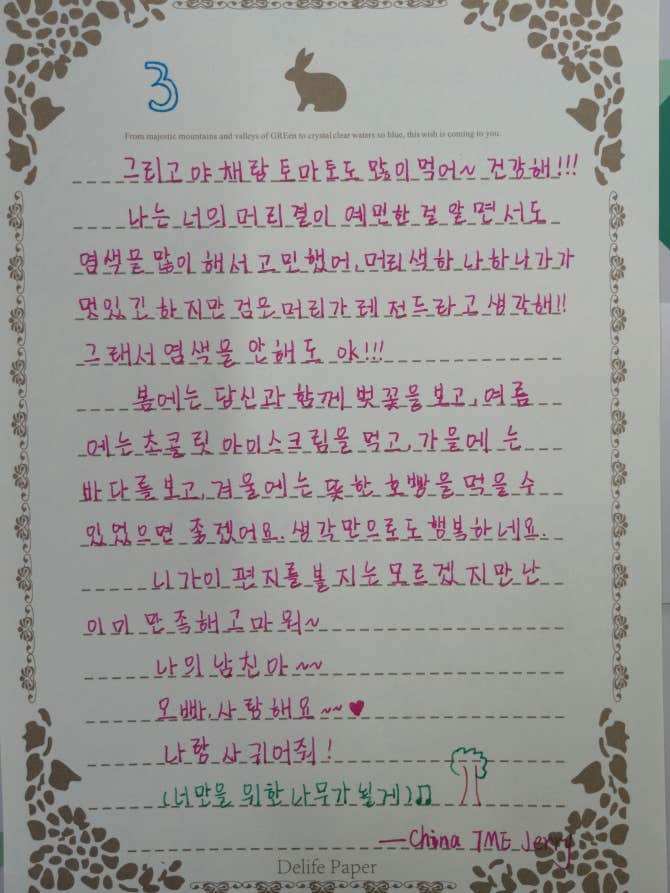 3
From majestic mountains and valleys of GREen to crystal clear waters so blue, this wish is coming to you.
그리고 야채랑 토마토도 많이 먹어~ 건강해!!!
나는 너의 머리결이 예민한 걸 알면서도
염색을 많이 해서 고민했어. 머리색 하나하나가
멋있긴 하지만 검은 머리가 레전드라고 생각해!!
그래서 염색을 안해도 야!!!
봄에는 당신과 함께 벚꽃을 보고, 여름
에는 초콜릿 아이스크림을 먹고, 가을에는
바다를 보고, 겨울에는 뜻한 호빵을 먹을 수
있었으면 좋겠어요. 생각만으로도 행복하네요.
니가 이 편지를 볼지는 모르겠지만 난
이미 만족해 고마워~
나의 남친아~~
오빠, 사랑해요~~♥
나랑 사귀어줘!
(너만을 위한 나무가 될게)♫
—China IME Jerry
Delife Paper